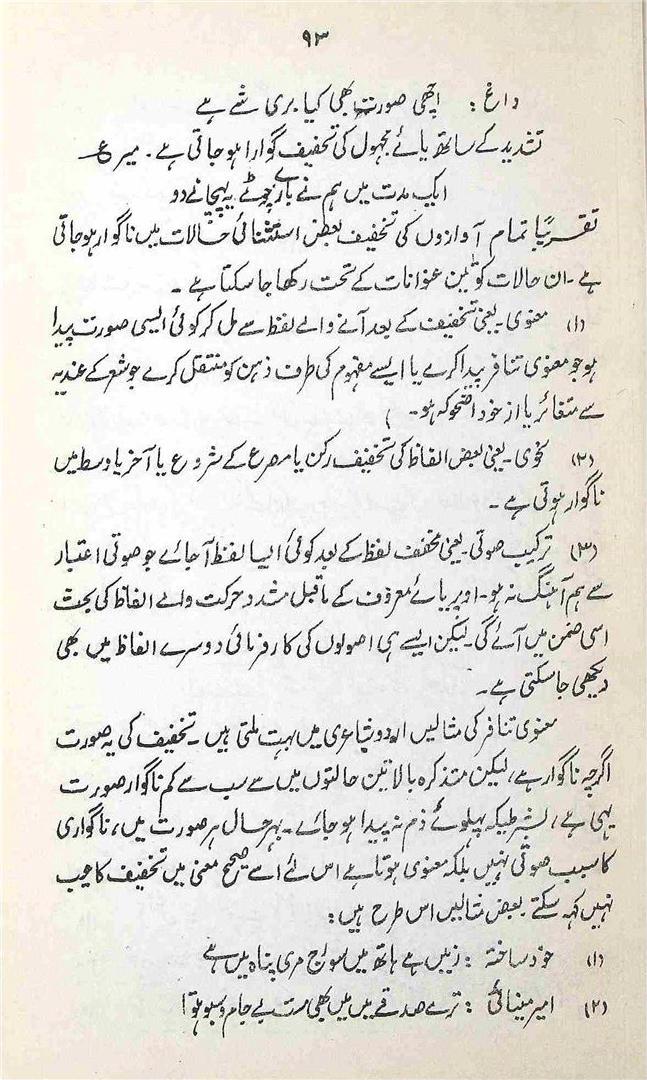 ۹۳
داغ : اچھی صورت بھی کیا بری شے ہے
تشدید کے ساتھ یائے مجہول کی تخفیف گوارا ہو جاتی ہے۔ میر ع
ایک مدت میں ہم نے بارے چوٹے یہ پہچانے دو
تقریباً تمام آوازوں کی تخفیف بعض استثنائی حالات میں ناگوار ہو جاتی
ہے۔ ان حالات کو تین عنوانات کے تحت رکھا جا سکتا ہے۔
(۱) معنوی۔ یعنی تخفیف کے بعد آنے والے لفظ سے مل کر کوئی ایسی صورت پیدا
ہو جو معنوی تنافر پیدا کرے یا ایسے مفہوم کی طرف ذہن کو منتقل کرے جو شعر کے عندیہ
سے متغائر یا از خود اضحوکہ ہو۔
(۲) نحوی۔ یعنی بعض الفاظ کی تخفیف رکن یا مصرع کے شروع یا آخر یا وسط میں
ناگوار ہوتی ہے۔
(۳) ترکیب صوتی۔ یعنی مخفف لفظ کے بعد کوئی ایسا لفظ آ جائے جو صوتی اعتبار
سے ہم آہنگ نہ ہو۔ اوپر یائے معروف کے ماقبل مشدد حرکت والے الفاظ کی بحث
اسی ضمن میں آئے گی۔ لیکن ایسے ہی اصولوں کی کارفرمائی دوسرے الفاظ میں بھی
دیکھی جا سکتی ہے۔
معنوی تنافر کی مثالیں اردو شاعری میں بہت ملتی ہیں۔ تخفیف کی یہ صورت
اگرچہ ناگوار ہے، لیکن متذکرہ بالا تین حالتوں میں سے سب سے کم ناگوار صورت
یہی ہے، بشرطیکہ پہلوئے ذم نہ پیدا ہو جائے۔ بہرحال ہر صورت میں، ناگواری
کا سبب صوتی نہیں بلکہ معنوی ہوتا ہے اس لئے اسے صحیح معنی میں تخفیف کا عیب
نہیں کہہ سکتے بعض مثالیں اس طرح ہیں:
(۱) خود ساختہ : زیں ہے ہاتھ میں سورج مری پناہ میں ہے
(۲) امیر مینائی : ترے صدقے میں میں بھی مست بے جام و سبو ہوتا